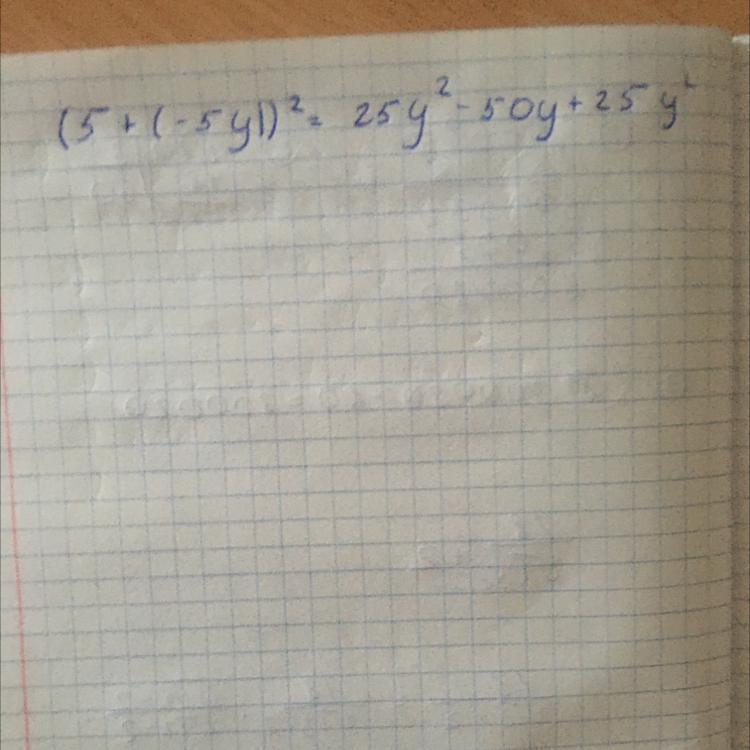 (5 + (-5y))² = 25y² - 50y + 25y²